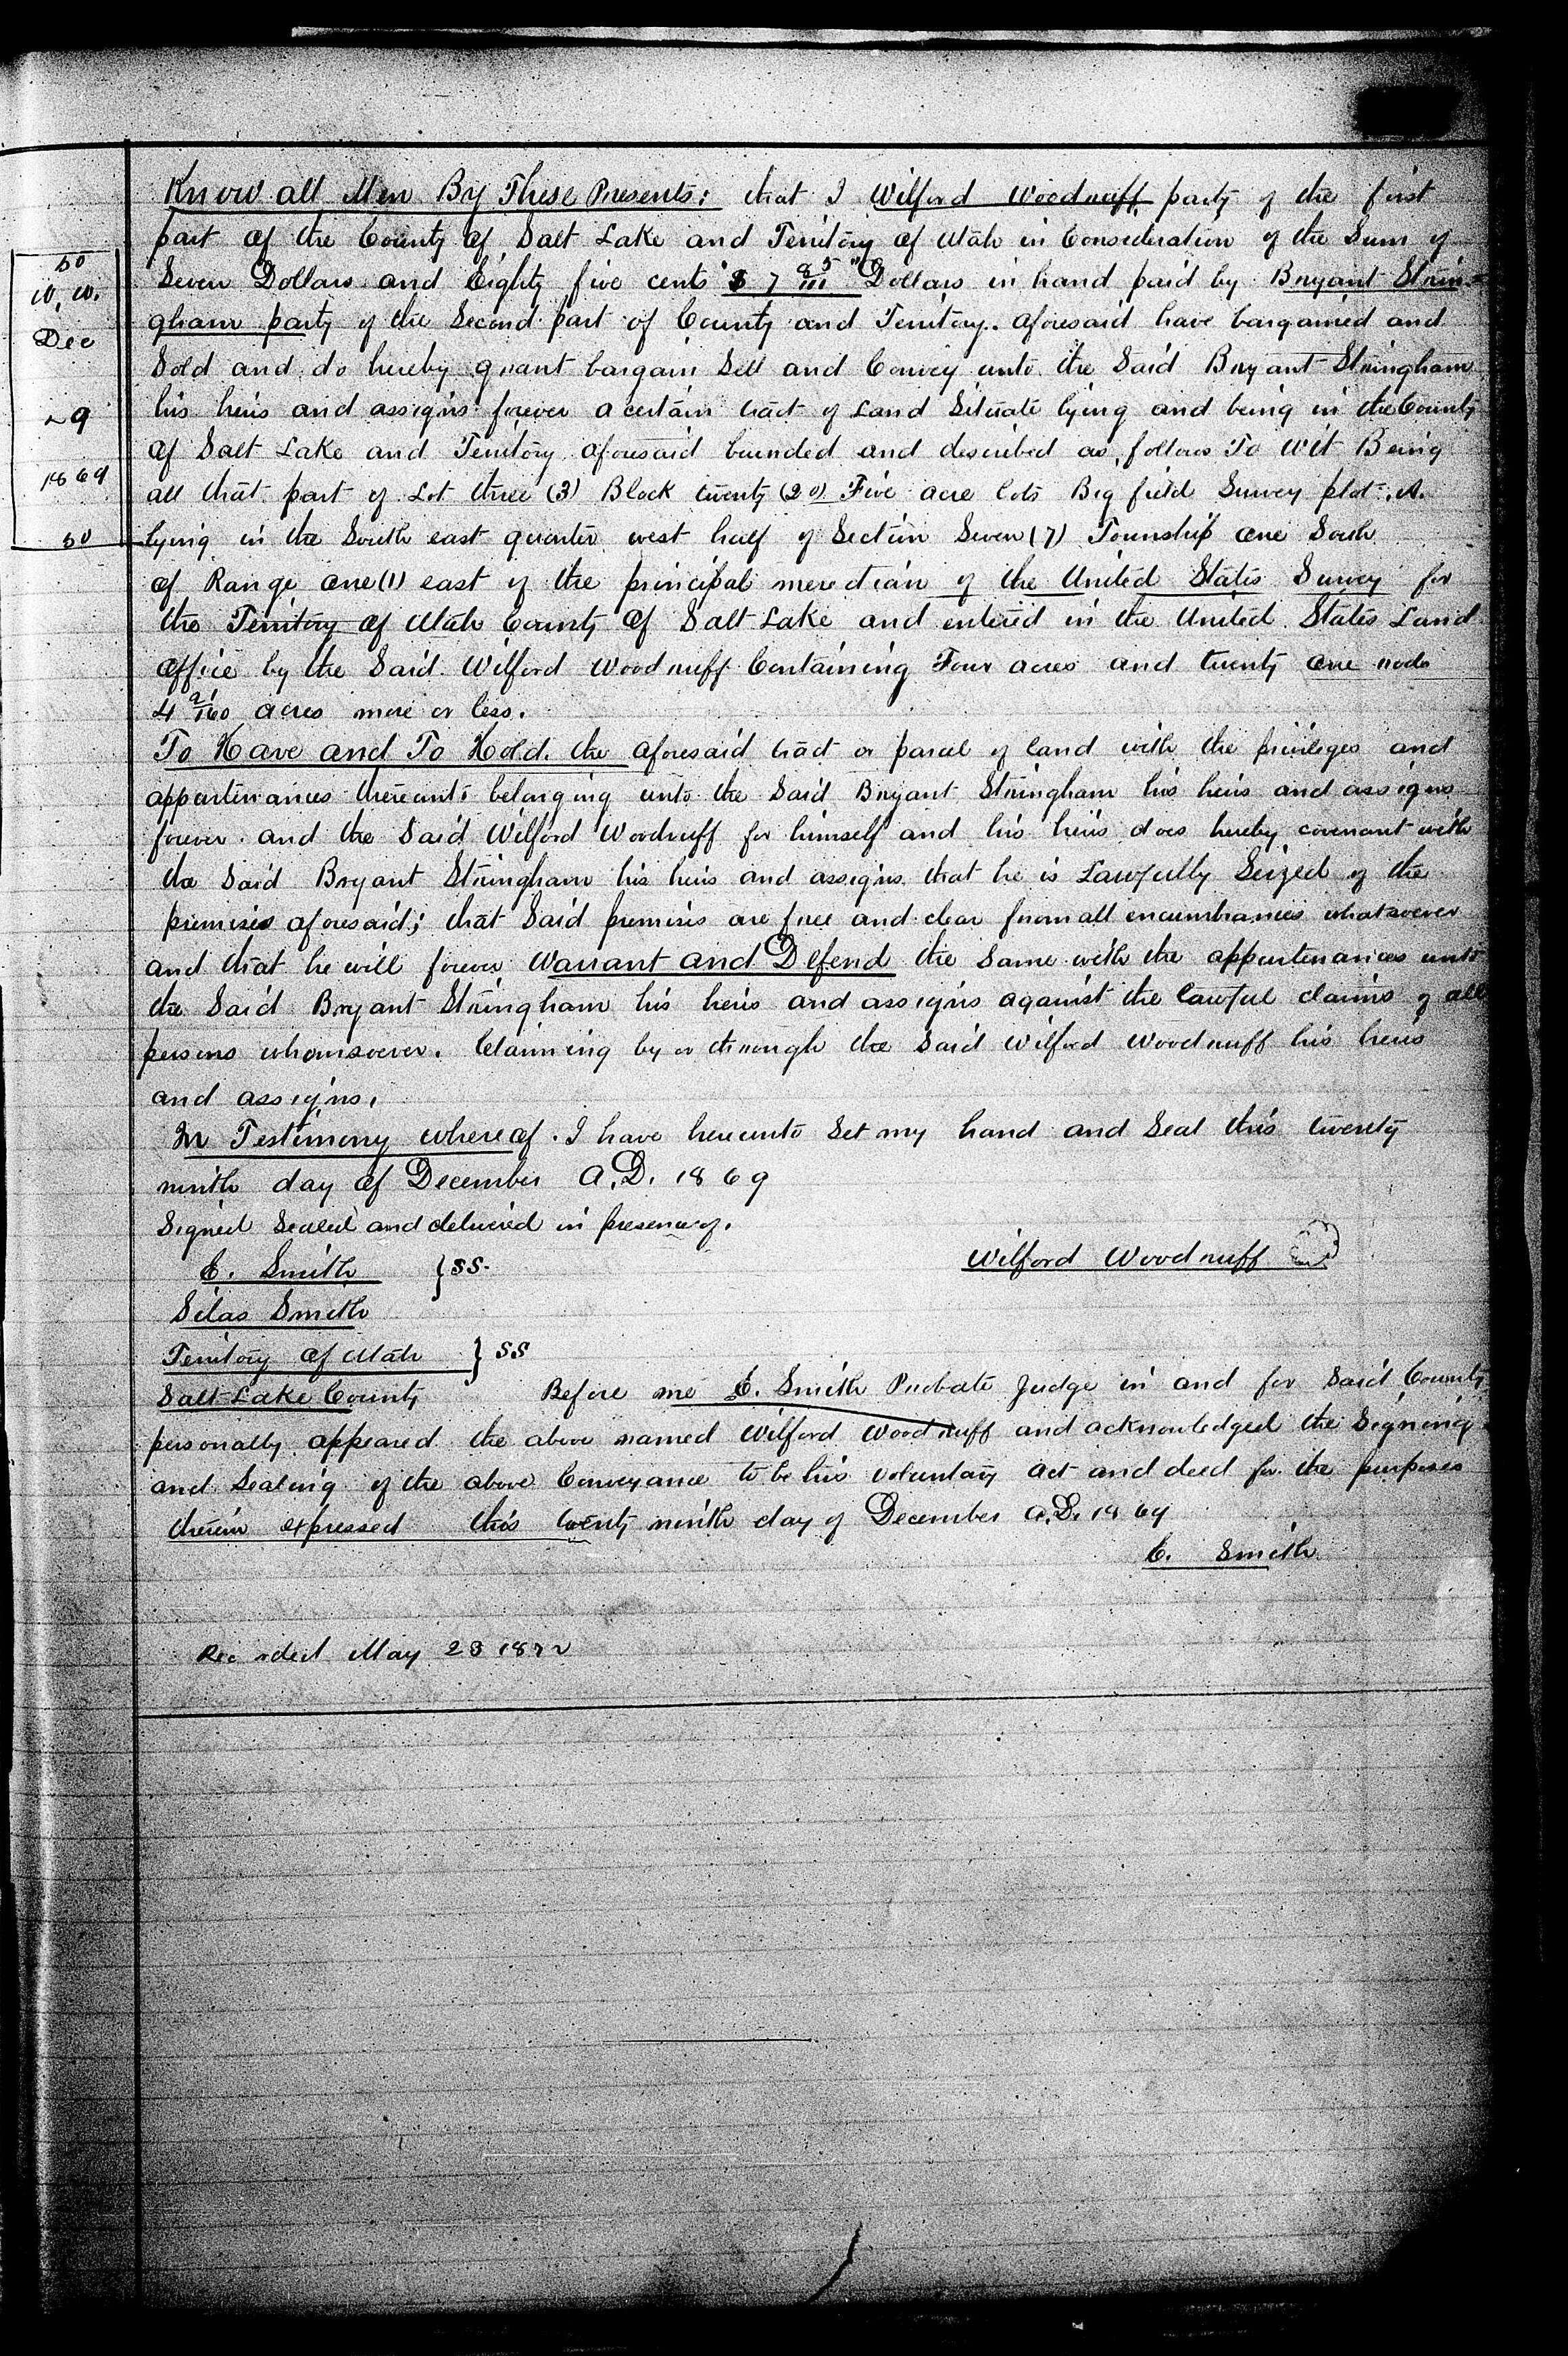 Know all Men By These Presents: that I Wilford Woodruff party of the first
part of the County of Salt Lake and Territory of Utah in Consideration of the Sum of
Seven Dollars and Eighty five cents "$ 7 85/100" Dollars in hand paid by Bryant Strin=
gham party of the Second part of County and Territory aforesaid have bargained and
Sold and do hereby grant bargain Sell and Convey unto the Said Bryant Stringham
his heirs and assigns forever a certain tract of Land Situate lying and being in the County
of Salt Lake and Territory aforesaid bounded and described as follows To Wit Being
all that part of Lot three (3) Block twenty (20) Five acre lots Big field Survey plot A.
lying in the South east quarter west half of Section Seven (7) Township one South
of Range one (1) east of the principal meredian of the United States Survey for
the Territory of Utah County of Salt Lake and entered in the United States Land
office by the Said Wilford Woodruff Containing Four acres and twenty one rods
4 21/160 acres more or less.
To Have and To Hold the aforesaid tract or parcel of land with the privileges and
appurtinances thereunto belonging unto the Said Bryant Stringham his heirs and assigns
forever. and the Said Wilford Woodruff for himself and his heirs does hereby covenant with
the Said Bryant Stringham his heirs and assigns that he is Lawfully Seized of the
premises aforesaid; that Said premises are free and clear from all encumbrances whatsoever
and that he will forever Warrant and Defend the Same with the appurtenances unto
the Said Bryant Stringham his heirs and assigns against the lawful claims of all
persons whomsoever. Claiming by or through the Said Wilford Woodruff his heirs
and assigns.
In Testimony whereof. I have hereunto Set my hand and Seal this twenty
ninth day of December A.D. 1869
Signed Sealed and delivered in presence of.
E. Smith } SS.
Wilford Woodruff
Silas Smith
Territory of Utah } SS
Salt Lake County Before me E. Smith Probate Judge in and for Said County
personally appeared the above named Wilford Woodruff and acknowledged the Signing
and Sealing of the above Conveyance to be his voluntary act and deed for the purposes
therein expressed this twenty ninth day of December A.D. 1869
E. Smith
Recorded May 23 1872
50
W. W.
Dec
29
1869
50